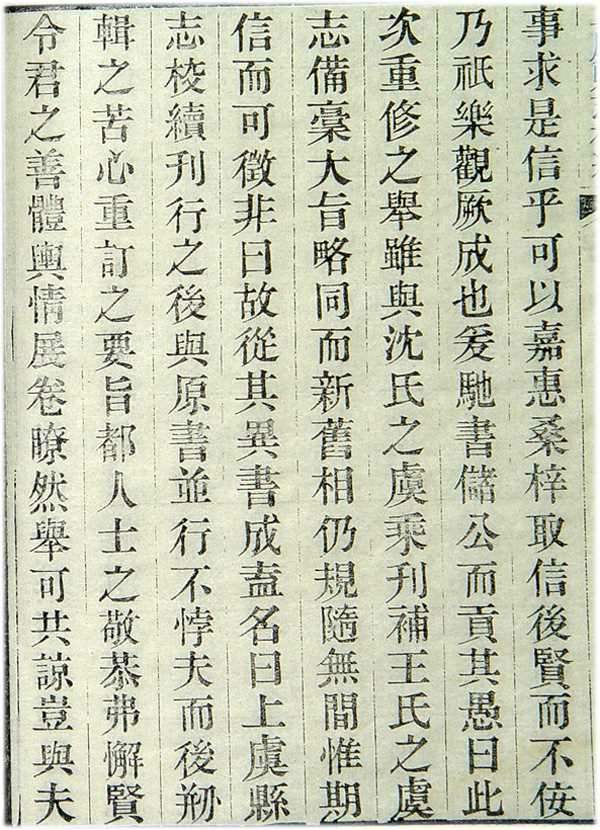 事求是信乎可以嘉惠桑梓取信後賢而不佞
乃祇樂觀厥成也爰馳書儲公而貢其愚曰此
次重修之舉雖與沈氏之虞乘刊補王氏之虞
志備稾大旨略同而新舊相仍規隨無間惟期
信而可徵非曰故從其異書成盍名曰上虞縣
志校續刊行之後與原書並行不悖夫而後剏
輯之苦心重訂之要旨都人士之敬恭弗懈賢
令君之善體輿情展卷瞭然舉可共諒豈與夫